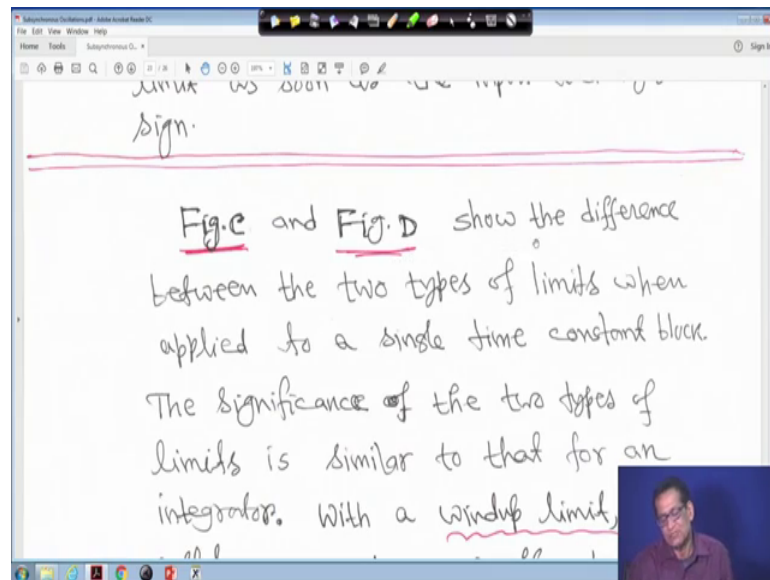 Subsynchronous Oscillations.pdf - Adobe Acrobat Reader DC
File Edit View Window Help
Home Tools Subsynchronous O... × Sign In
limit as soon as the input
sign.
Fig.C and Fig.D show the difference
between the two types of limits when
applied to a single time constant block.
The significance of the two types of
limits is similar to that for an
integrator. With a windup limit,